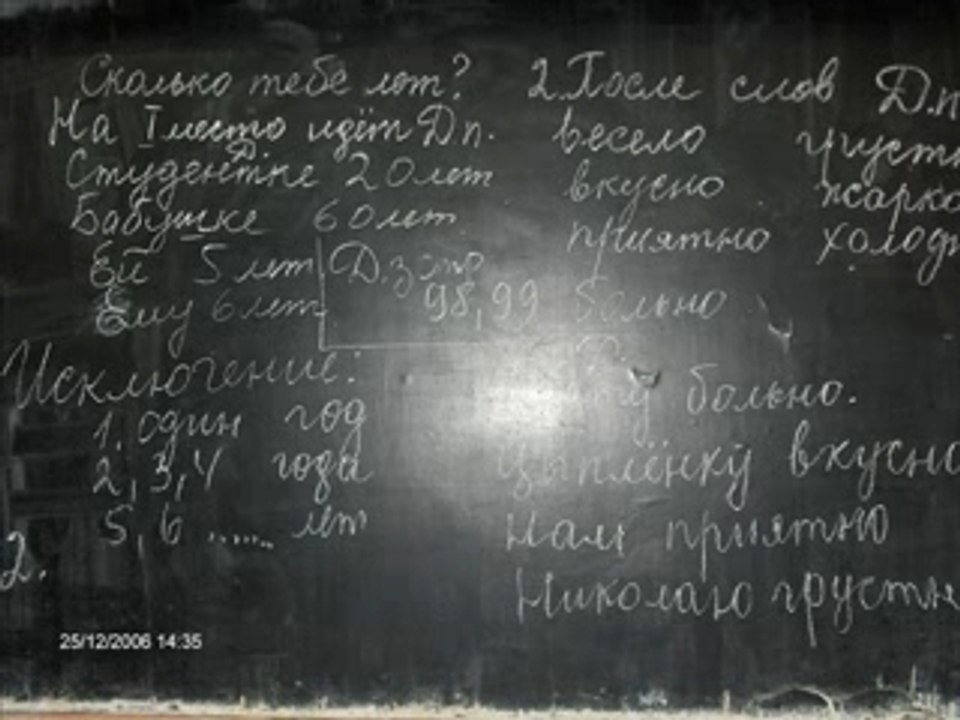 Сколько тебе лет?
На I место идёт Д.п.
Д.
Студентке 20 лет
Бабушке 60 лет
Ей 5 лет
Ему 6 лет
Д.з стр
98, 99
Исключение:
1. один год
2, 3, 4 года
5, 6 ...... лет
2.
2. После слов Д.п
весело грустн
вкусно жарко
приятно холодн
больно
больно.
Цыплёнку вкусно
Нам приятно
Николаю грустн
25/12/2006 14:35